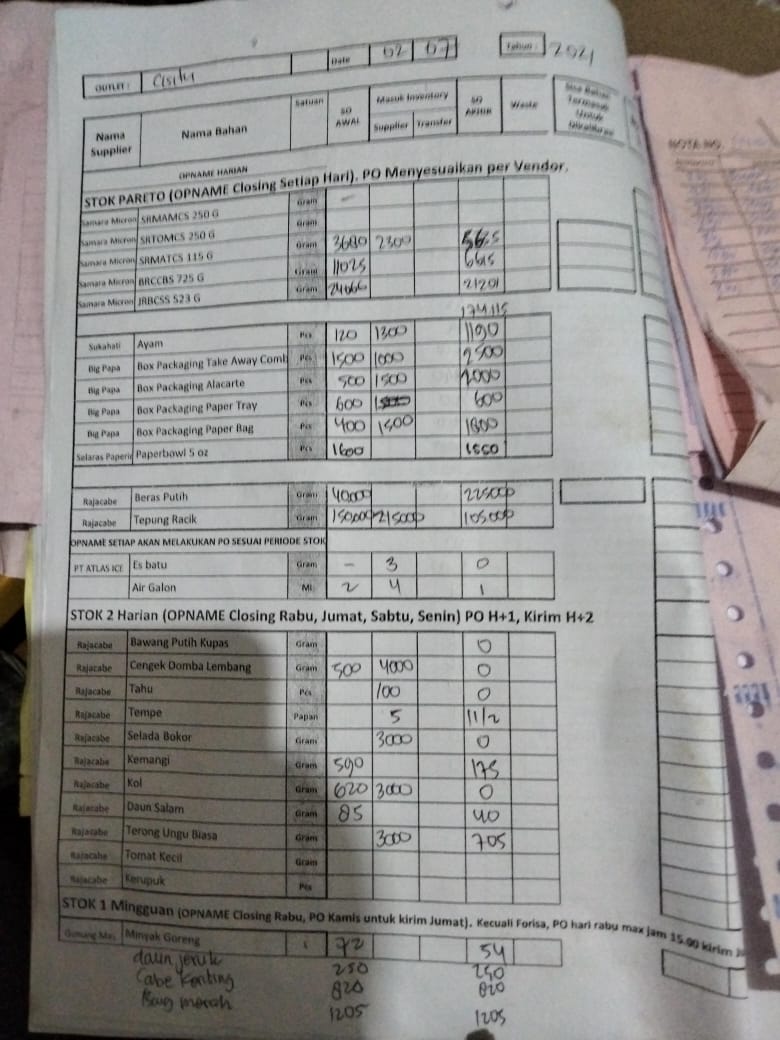 OUTLET : Cisitu Date 02 07 Tahun : 2021
Nama Supplier Nama Bahan Satuan SO AWAL Masuk Inventory Supplier Transfer SO AKHIR Waste Sisa Bahan Termasuk Untuk
OPNAME HARIAN
STOK PARETO (OPNAME Closing Setiap Hari). PO Menyesuaikan per Vendor.
Samara Micron SRMAMCS 250 G Gram -
Samara Micron SRTOMCS 250 G Gram
Samara Micron SRMATCS 115 G Gram 3680 2300
Samara Micron BRCCBS 725 G Gram 11025 6615
Samara Micron JRBCSS 523 G Gram 24066 21201
174,115
Sukahati Ayam Pcs 120 1300 1190
Big Papa Box Packaging Take Away Comb Pcs 1500 1000 2500
Big Papa Box Packaging Alacarte Pcs 500 1500 2000
Big Papa Box Packaging Paper Tray Pcs 600 600
Big Papa Box Packaging Paper Bag Pcs 400 1500 1800
Selaras Paperin Paperbowl 5 oz Pcs 1600 1550
Rajacabe Beras Putih Gram 40000 225000
Rajacabe Tepung Racik Gram 150000 215000 105000
OPNAME SETIAP AKAN MELAKUKAN PO SESUAI PERIODE STOK
PT ATLAS ICE Es batu Gram - 3 0
Air Galon Ml 2 4 1
STOK 2 Harian (OPNAME Closing Rabu, Jumat, Sabtu, Senin) PO H+1, Kirim H+2
Rajacabe Bawang Putih Kupas Gram 0
Rajacabe Cengek Domba Lembang Gram 500 4000 0
Rajacabe Tahu Pcs 100 0
Rajacabe Tempe Papan 5 11/2
Rajacabe Selada Bokor Gram 3000 0
Rajacabe Kemangi Gram 590 175
Rajacabe Kol Gram 620 3000 0
Rajacabe Daun Salam Gram 85 40
Rajacabe Terong Ungu Biasa Gram 3000 705
Rajacabe Tomat Kecil Gram
Rajacabe Kerupuk Pcs
STOK 1 Mingguan (OPNAME Closing Rabu, PO Kamis untuk kirim Jumat). Kecuali Forisa, PO hari rabu max jam 15.00 kirim
Gunung Mas Minyak Goreng 72 54
daun jeruk 250 250
Cabe Kriting 820 820
Bawg merah 1205 1205
NOTA NO.